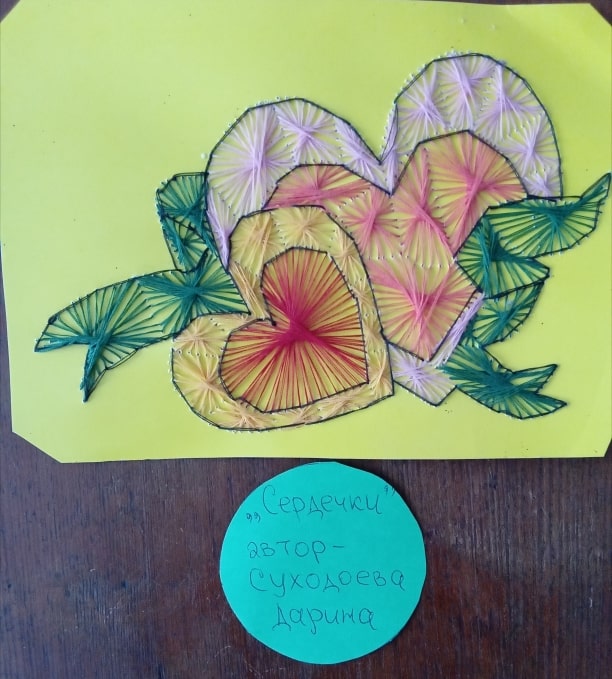 „Сердечки"
автор-
Суходоева
Дарина